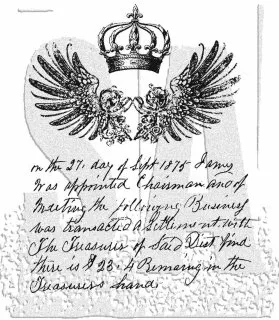 on the 27. day of Sept 1875 James
Was appointed Chairman and of
Meeting the following Business
was transacted a Settlement with
The Treasurer of Said Dist find
there is $ 23.4 Remaing in the
Treasurers hand